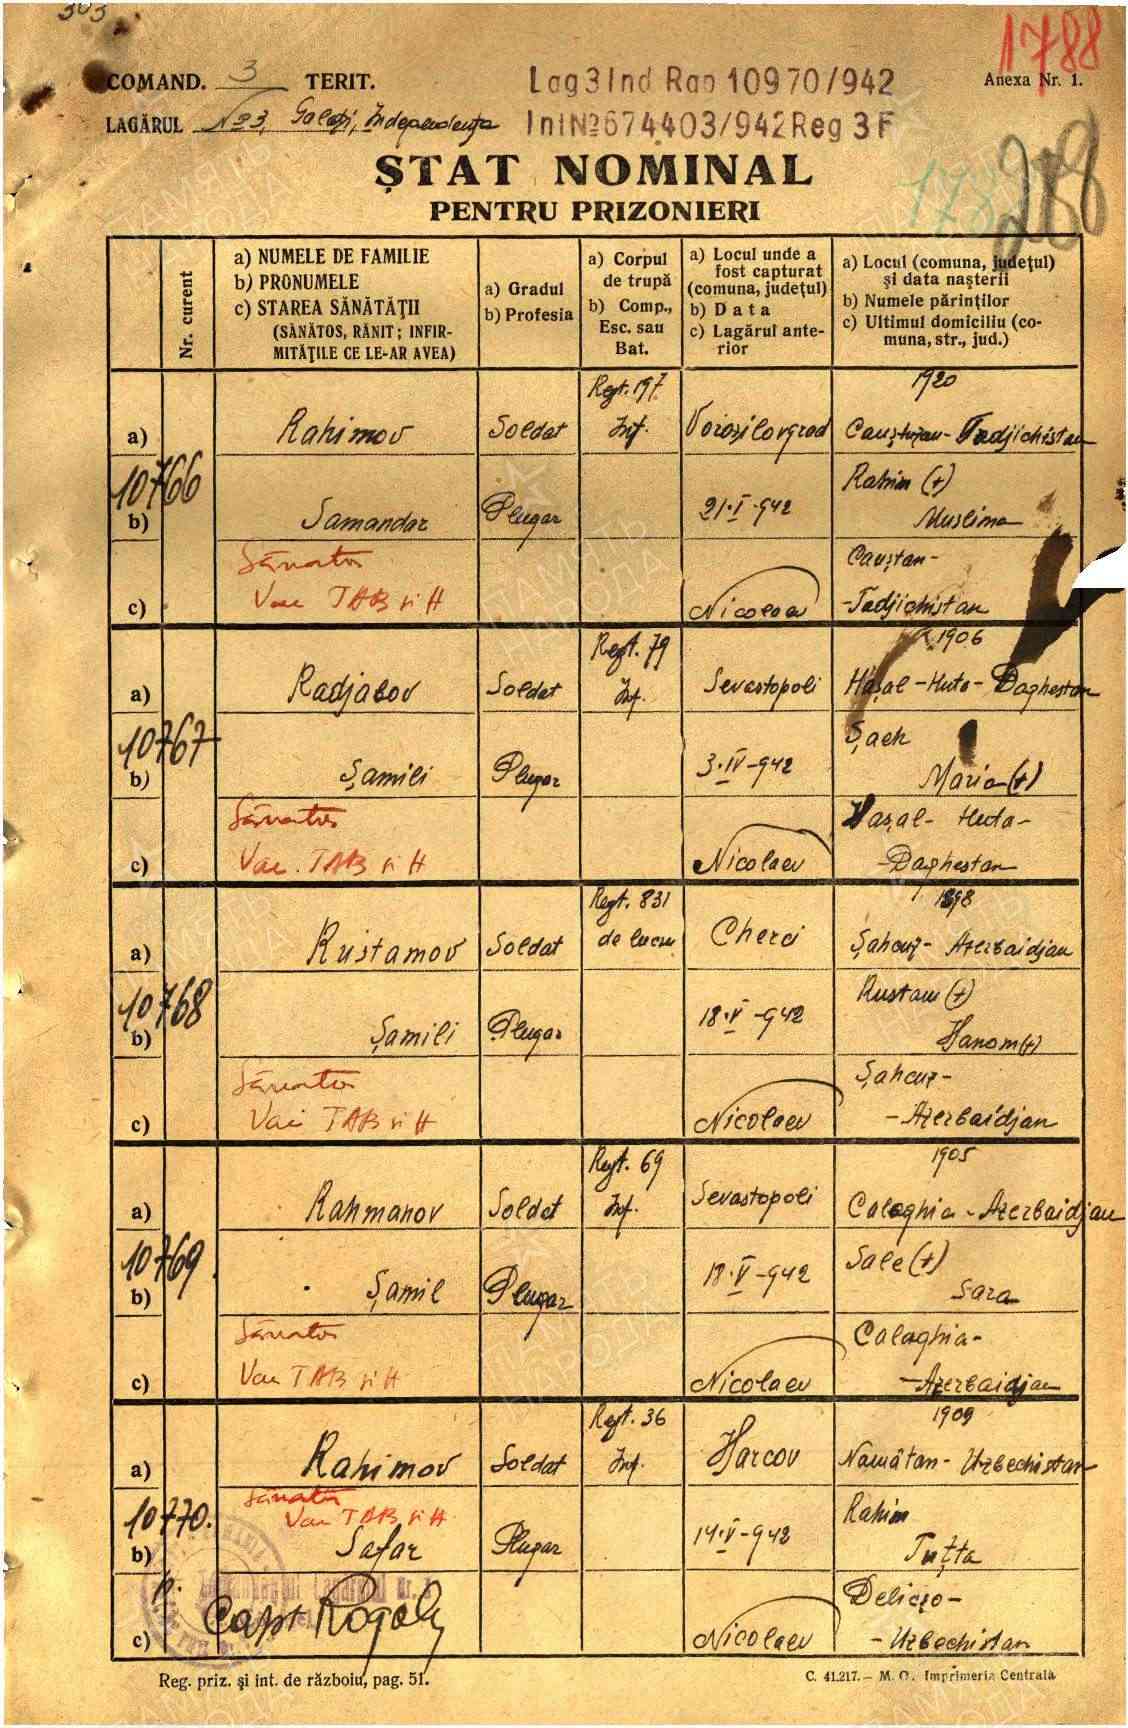 303
1788
COMAND. 3 TERIT.
Lag 3 Ind Rap 10970/942
Anexa Nr. 1.
LAGĂRUL No 3, Galați, Independența
Int No 674403/942 Reg 3 F
288
ȘTAT NOMINAL
PENTRU PRIZONIERI
Nr. curent
a) NUMELE DE FAMILIE
b) PRONUMELE
c) STAREA SĂNĂTĂȚII
(SĂNĂTOS, RĂNIT; INFIR-
MITĂȚILE CE LE-AR AVEA)
a) Gradul
b) Profesia
a) Corpul
de trupă
b) Comp.,
Esc. sau
Bat.
a) Locul unde a
fost capturat
(comuna, județul)
b) Data
c) Lagărul ante-
rior
a) Locul (comuna, județul)
și data nașterii
b) Numele părinților
c) Ultimul domiciliu (co-
muna, str., jud.)
10766
a) Rahimov Soldat Regt. 197 Inf. Voroșilovgrad 1920 Tadjichistan
b) Samandar Plugar 21·I·942 Rahim (+) Muslima
c) Sănătos Vac TAB și H Nicolaev Cauștan-
-Tadjichistan
10767
a) Radjabov Soldat Regt. 79 Inf. Sevastopoli 1906 Hașal-Huta-Daghestan
b) Șamili Plugar 3·IV-942 Șaeh Maria (+)
c) Sănătos Vac. TAB și H Nicolaev Hașal-Huta-
-Daghestan
10768
a) Rustamov Soldat Regt. 831 de lucru Cherci 1898 Șahcuz-Azerbaidjan
b) Șamili Plugar 18·V-942 Rustam (+) Hanom (+)
c) Sănătos Vac TAB și H Nicolaev Șahcuz-
-Azerbaidjan
10769
a) Rahmanov Soldat Regt. 69 Inf. Sevastopoli 1905 Calaghia-Azerbaidjan
b) Șamil Plugar 18·V-942 Sale (+) Sara
c) Sănătos Vac TAB și H Nicolaev Calaghia-
-Azerbaidjan
10770.
a) Rahimov Soldat Regt. 36 Inf. Harcov 1909 Namâtan-Uzbechistan
Sănătos Vac TAB și H
b) Safar Plugar 14·V-942 Rahim Tuțta
c) Nicolaev Deliczo-
-Uzbechistan
p. Capt Rogoly
Reg. priz. și int. de războiu, pag. 51.
C. 41.217. — M. O. Imprimeria Centrala
ПАМЯТЬ НАРОДА